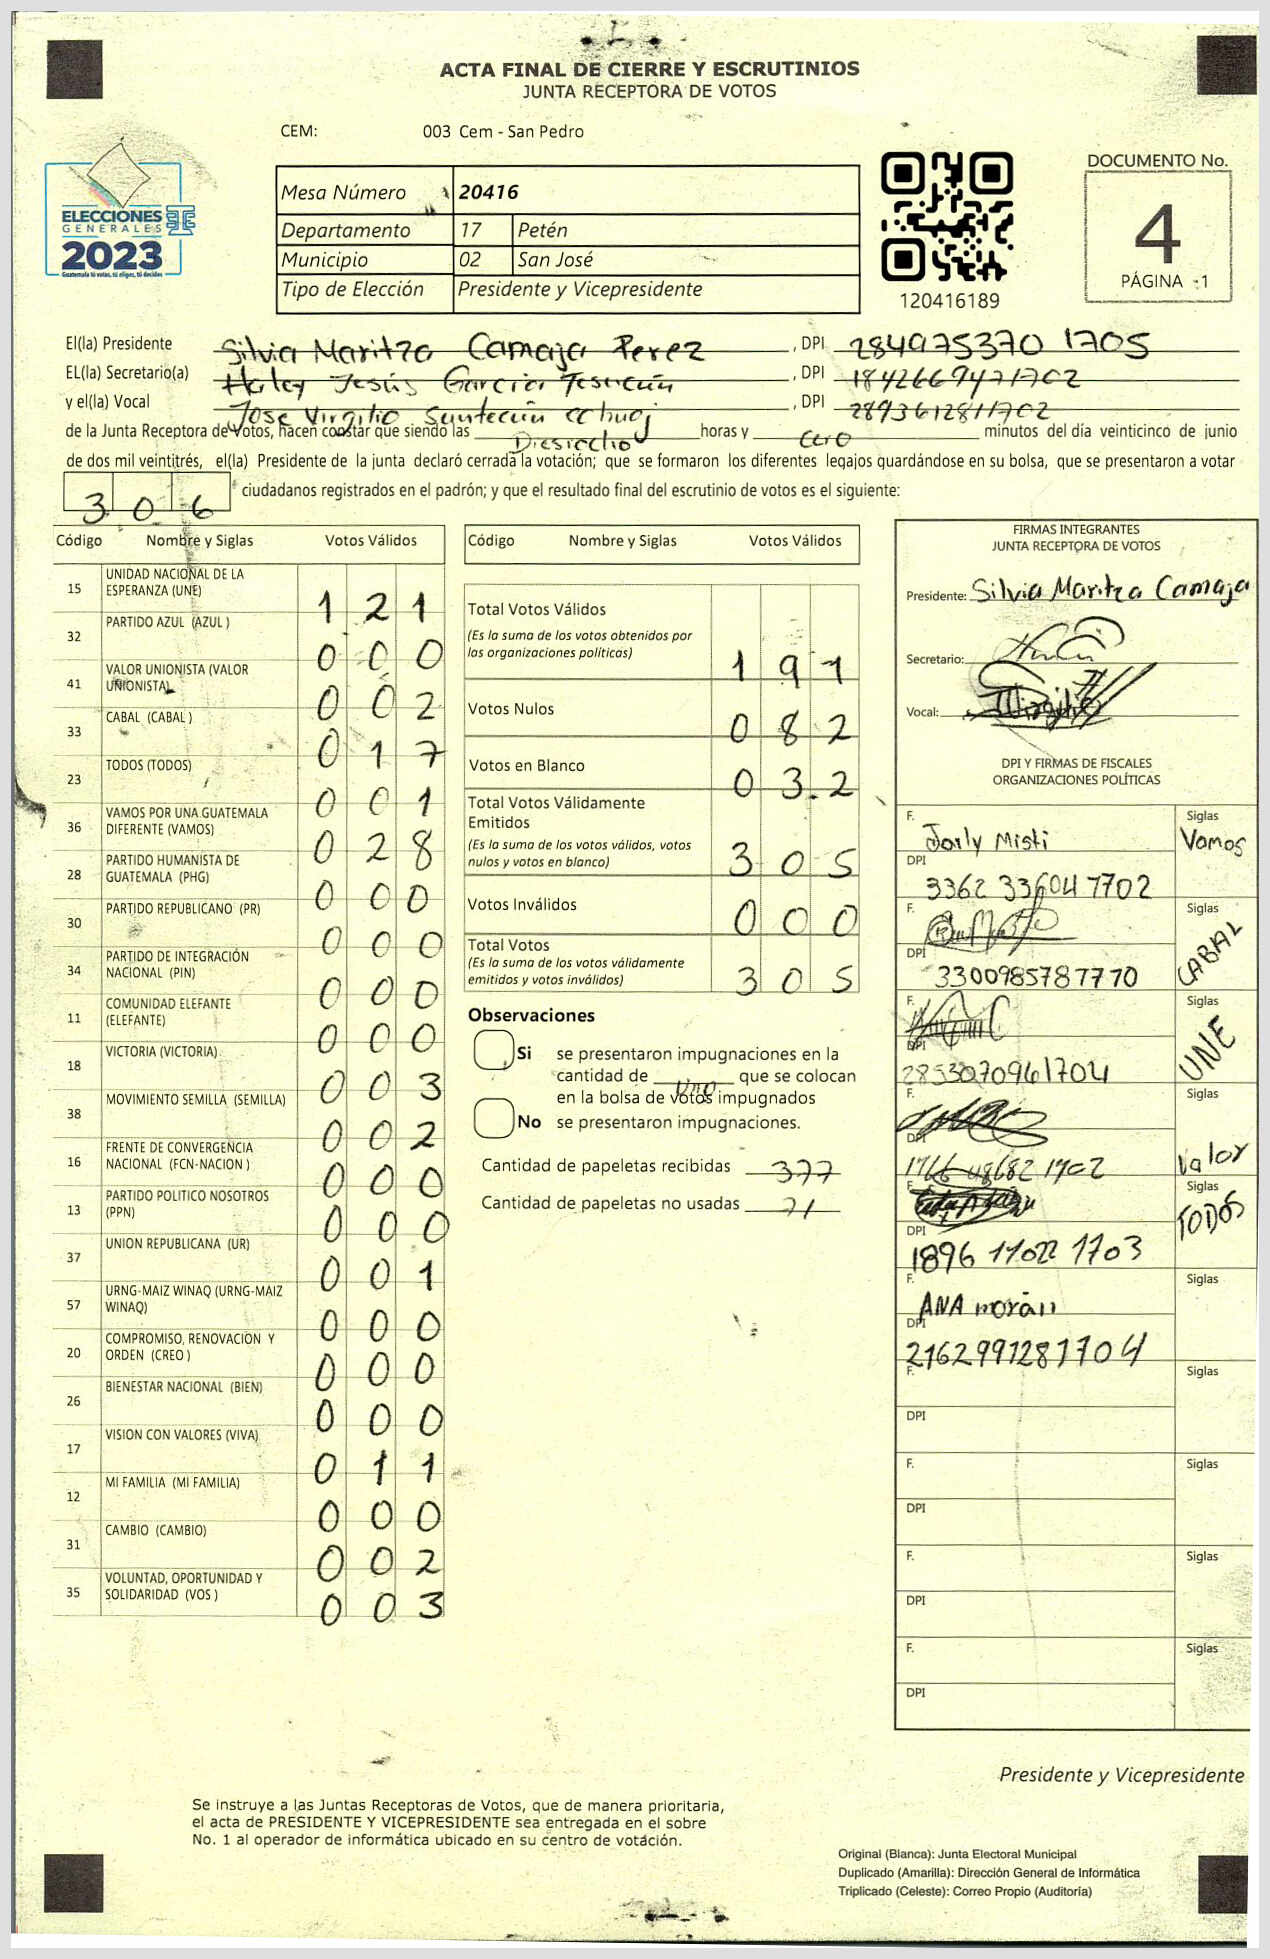 ACTA FINAL DE CIERRE Y ESCRUTINIOS
JUNTA RECEPTORA DE VOTOS
CEM: 003 Cem - San Pedro
ELECCIONES
GENERALES
2023
Guatemala tú votas, tú eliges, tú decides
Mesa Número 20416
Departamento 17 Petén
Municipio 02 San José
Tipo de Elección Presidente y Vicepresidente
120416189
DOCUMENTO No.
4
PÁGINA -1
El(la) Presidente Silvia Maritza Camaja Perez, DPI 284975370 1705
EL(la) Secretario(a) Haley Jesús Garcia Tesucún, DPI 1842669471702
y el(la) Vocal Jose Virgilio Suntecún, DPI 2893612811702
de la Junta Receptora de Votos, hacen constar que siendo las Diesiocho horas y cero minutos del día veinticinco de junio
de dos mil veintitrés, el(la) Presidente de la junta declaró cerrada la votación; que se formaron los diferentes legajos guardándose en su bolsa, que se presentaron a votar
306 ciudadanos registrados en el padrón; y que el resultado final del escrutinio de votos es el siguiente:
Código Nombre y Siglas Votos Válidos
15 UNIDAD NACIONAL DE LA ESPERANZA (UNE) 121
32 PARTIDO AZUL (AZUL ) 000
41 VALOR UNIONISTA (VALOR UNIONISTA) 002
33 CABAL (CABAL ) 017
23 TODOS (TODOS) 001
36 VAMOS POR UNA GUATEMALA DIFERENTE (VAMOS) 028
28 PARTIDO HUMANISTA DE GUATEMALA (PHG) 000
30 PARTIDO REPUBLICANO (PR) 000
34 PARTIDO DE INTEGRACIÓN NACIONAL (PIN) 000
11 COMUNIDAD ELEFANTE (ELEFANTE) 000
18 VICTORIA (VICTORIA) 003
38 MOVIMIENTO SEMILLA (SEMILLA) 002
16 FRENTE DE CONVERGENCIA NACIONAL (FCN-NACION ) 000
13 PARTIDO POLITICO NOSOTROS (PPN) 000
37 UNION REPUBLICANA (UR) 001
57 URNG-MAIZ WINAQ (URNG-MAIZ WINAQ) 000
20 COMPROMISO, RENOVACIÓN Y ORDEN (CREO ) 000
26 BIENESTAR NACIONAL (BIEN) 000
17 VISION CON VALORES (VIVA) 011
12 MI FAMILIA (MI FAMILIA) 000
31 CAMBIO (CAMBIO) 002
35 VOLUNTAD, OPORTUNIDAD Y SOLIDARIDAD (VOS ) 003
Código Nombre y Siglas Votos Válidos
Total Votos Válidos
(Es la suma de los votos obtenidos por
las organizaciones políticas) 191
Votos Nulos 082
Votos en Blanco 032
Total Votos Válidamente
Emitidos
(Es la suma de los votos válidos, votos
nulos y votos en blanco) 305
Votos Inválidos 000
Total Votos
(Es la suma de los votos válidamente
emitidos y votos inválidos) 305
Observaciones
Si se presentaron impugnaciones en la
cantidad de uno que se colocan
en la bolsa de votos impugnados
No se presentaron impugnaciones.
Cantidad de papeletas recibidas 377
Cantidad de papeletas no usadas 71
FIRMAS INTEGRANTES
JUNTA RECEPTORA DE VOTOS
Presidente: Silvia Maritza Camaja
Secretario:
Vocal:
DPI Y FIRMAS DE FISCALES
ORGANIZACIONES POLÍTICAS
F. Jorly Misti Siglas Vamos
DPI 3362 33604 1702
F. Siglas CABAL
DPI 3300985787770
F. Siglas UNE
DPI 2853070961704
F. Siglas Valor
DPI 1766 48682 1702
F. Siglas TODOS
DPI 1896 11022 1703
F. ANA morán Siglas
DPI 2162991281704
F. Siglas
DPI
F. Siglas
DPI
F. Siglas
DPI
F. Siglas
DPI
Presidente y Vicepresidente
Se instruye a las Juntas Receptoras de Votos, que de manera prioritaria,
el acta de PRESIDENTE Y VICEPRESIDENTE sea entregada en el sobre
No. 1 al operador de informática ubicado en su centro de votación.
Original (Blanca): Junta Electoral Municipal
Duplicado (Amarilla): Dirección General de Informática
Triplicado (Celeste): Correo Propio (Auditoría)